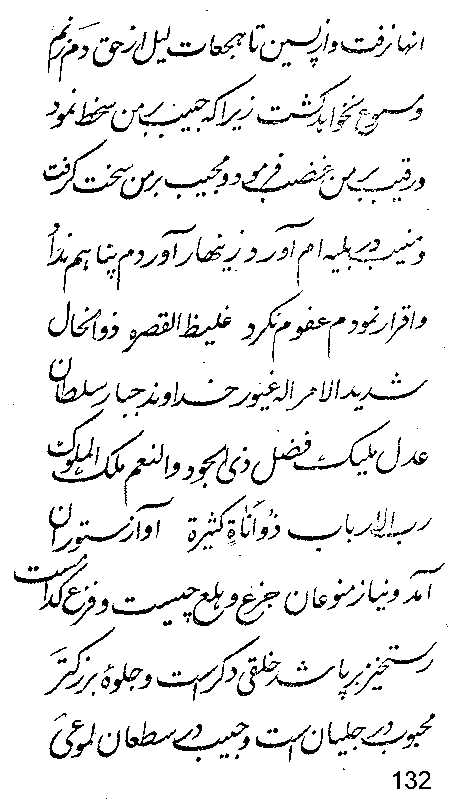 انها نرفت و از پسین تا هجعات لیل از حق دم نزنم
و مسموع نخواهد گشت زیرا که حبیب بر من سخط نمود
و رقیب بر من غضب فرمود و مجیب بر من سخت گرفت
و منیب در بلیه ام آورد زینهار آوردم پناهم نداد
و اقرار نمودم عفوم نکرد غلیظ القصره ذو المحال
شدید الامر اله غیور خداوند جبار سلطان
عدل ملیک فضل ذی الجود والنعم ملک الملوک
رب الارباب ذو اناة کثیرة آواز ستوران
آمد و نیاز منوعان جزع و هلع چیست و فزع کدامست
رستخیز برپا شد خلقی دگر است و جلوهٔ بزرگتر
محبوب در جلیان است و حبیب در سطعان لموعی
132